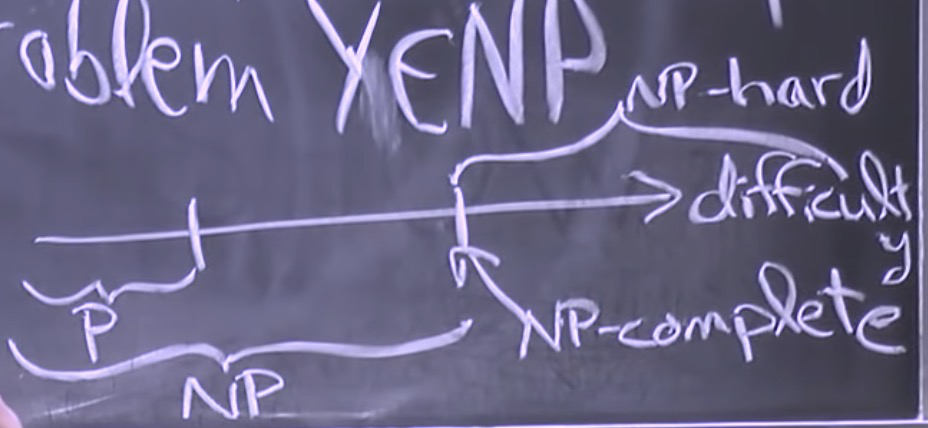 oblem X∈NP
NP-hard
difficulty
P
NP-complete
NP